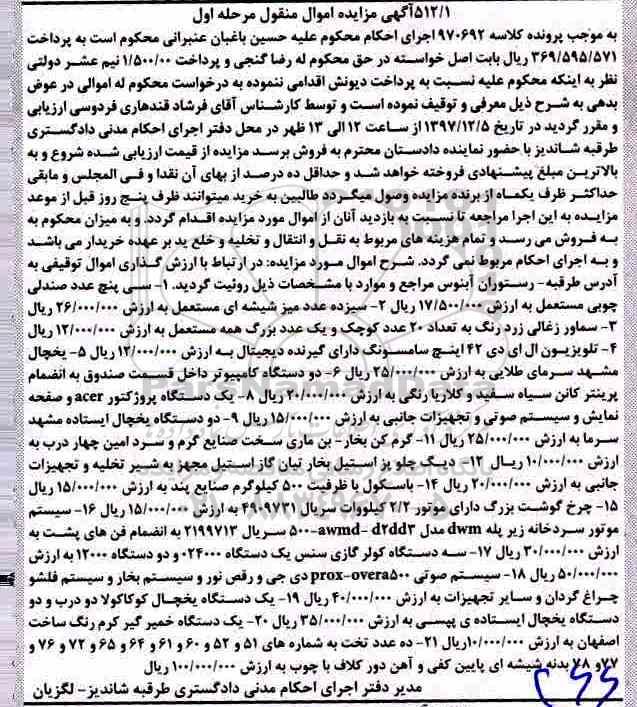 ۵۱۲/۱آگهی مزایده اموال منقول مرحله اول
به موجب پرونده کلاسه ۹۷۰۶۹۲ اجرای احکام محکوم علیه حسین باغبان عنبرانی محکوم است به پرداخت
۳۶۹/۵۹۵/۵۷۱ ریال بابت اصل خواسته در حق محکوم له رضا گنجی و پرداخت ۱/۵۰۰/۰۰ نیم عشر دولتی
نظر به اینکه محکوم علیه نسبت به پرداخت دیونش اقدامی ننموده به درخواست محکوم له اموالی در عوض
بدهی به شرح ذیل معرفی و توقیف نموده است و توسط کارشناس آقای فرشاد قندهاری فردوسی ارزیابی
و مقرر گردید در تاریخ ۱۳۹۷/۱۲/۵ از ساعت ۱۲ الی ۱۳ ظهر در محل دفتر اجرای احکام مدنی دادگستری
طرقبه شاندیز با حضور نماینده دادستان محترم به فروش برسد مزایده از قیمت ارزیابی شده شروع و به
بالاترین مبلغ پیشنهادی فروخته خواهد شد و حداقل ده درصد از بهای آن نقدا و فی المجلس و مابقی
حداکثر ظرف یکماه از برنده مزایده وصول میگردد طالبین به خرید میتوانند ظرف پنج روز قبل از موعد
مزایده به این اجرا مراجعه تا نسبت به بازدید آنان از اموال مورد مزایده اقدام گردد. و به میزان محکوم به
به فروش می رسد و تمام هزینه های مربوط به نقل و انتقال و تخلیه و خلع ید بر عهده خریدار می باشد
و به اجرای احکام مربوط نمی گردد. شرح اموال مورد مزایده: در ارتباط با ارزش گذاری اموال توقیفی به
آدرس طرقبه- رستوران آبنوس مراجع و موارد با مشخصات ذیل روئیت گردید. ۱- سی پنج عدد صندلی
چوبی مستعمل به ارزش ۱۷/۵۰۰/۰۰۰ ریال ۲- سیزده عدد میز شیشه ای مستعمل به ارزش ۲۶/۰۰۰/۰۰۰ ریال
۳- سماور زغالی زرد رنگ به تعداد ۲۰ عدد کوچک و یک عدد بزرگ همه مستعمل به ارزش ۱۲/۰۰۰/۰۰۰ ریال
۴- تلویزیون ال ای دی ۴۲ اینچ سامسونگ دارای گیرنده دیجیتال به ارزش ۱۲/۰۰۰/۰۰۰ ریال ۵- یخچال
مشهد سرمای طلایی به ارزش ۲۵/۰۰۰/۰۰۰ ریال ۶- دو دستگاه کامپیوتر داخل قسمت صندوق به انضمام
پرینتر کانن سیاه سفید و کلاریا رنگی به ارزش ۲۰/۰۰۰/۰۰۰ ریال ۸- یک دستگاه پروژکتور acer و صفحه
نمایش و سیستم صوتی و تجهیزات جانبی به ارزش ۱۵/۰۰۰/۰۰۰ ریال ۹- دو دستگاه یخچال ایستاده مشهد
سرما به ارزش ۲۵/۰۰۰/۰۰۰ ریال ۱۱- گرم کن بخار- بن ماری سخت صنایع گرم و سرد امین چهار درب به
ارزش ۱۰/۰۰۰/۰۰۰ ریال ۱۳- دیگ چلو پز استیل بخار تیان گاز استیل مجهز به شیر تخلیه و تجهیزات
جانبی به ارزش ۲۰/۰۰۰/۰۰۰ ریال ۱۴- باسکول با ظرفیت ۵۰۰ کیلوگرم صنایع پند به ارزش ۱۵/۰۰۰/۰۰۰ ریال
۱۵- چرخ گوشت بزرگ دارای موتور ۲/۲ کیلووات سریال ۴۹۰۹۷۳۱ به ارزش ۱۵/۰۰۰/۰۰۰ ریال ۱۶- سیستم
موتور سردخانه زیر پله dwm مدل awmd- d۲dd۳-۵۰۰ سریال ۲۱۹۹۷۱۳ به انضمام فن های پشت به
ارزش ۳۰/۰۰۰/۰۰۰ ریال ۱۷- سه دستگاه کولر گازی سنس یک دستگاه ۰۲۴۰۰۰ و دو دستگاه ۱۲۰۰۰ به ارزش
۵۰/۰۰۰/۰۰۰ ریال ۱۸- سیستم صوتی prox-overa۵۰۰ دی جی و رقص نور و سیستم بخار و سیستم فلشو
چراغ گردان و سایر تجهیزات به ارزش ۴۰/۰۰۰/۰۰۰ ریال ۱۹- یک دستگاه یخچال کوکاکولا دو درب و دو
دستگاه یخچال ایستاده ی پپسی به ارزش ۳۵/۰۰۰/۰۰۰ ریال ۲۰- یک دستگاه خمیر گیر کرم رنگ ساخت
اصفهان به ارزش ۱۰/۰۰۰/۰۰۰ریال ۲۱- ده عدد تخت به شماره های ۵۱ و ۵۲ و ۶۰ و ۶۱ و ۶۴ و ۶۵ و ۷۲ و ۷۶ و
۷۷و ۷۸ بدنه شیشه ای پایین کفی و آهن دور کلاف با چوب به ارزش ۱۰۰/۰۰۰/۰۰۰ ریال
مدیر دفتر اجرای احکام مدنی دادگستری طرقبه شاندیز- لگزیان